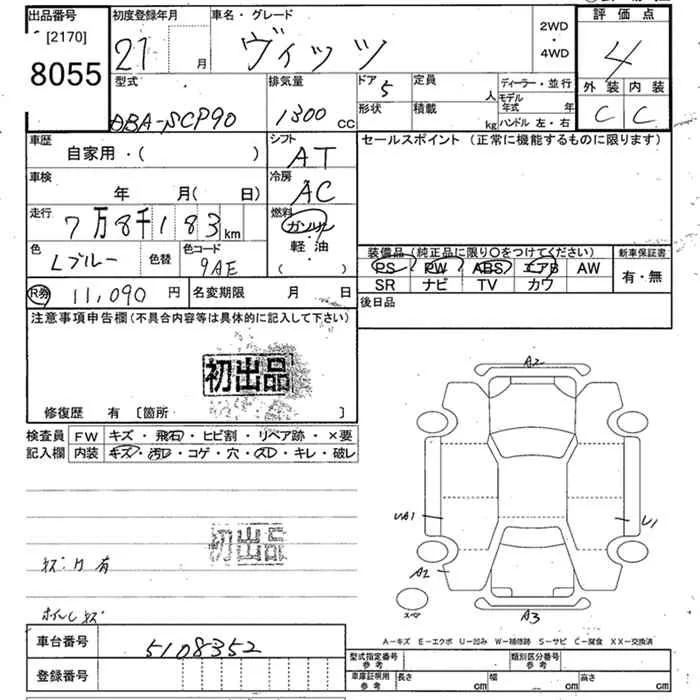 出品番号 初度登録年月 車名・グレード 2WD・4WD 評価点
[2170]
8055 21 月 ヴィッツ 4
型式 排気量 ドア 5 定員 人 ディーラー・並行 外装 内装
DBA-SCP90 1300 cc 形状 積載 kg モデル年式 年 ハンドル 左・右 C C
車歴 シフト セールスポイント(正常に機能するものに限ります)
自家用・( ) AT
車検 冷房
年 月( 日) AC
走行 燃料
7万8千183km ガソリン・
色 色替 色コード 軽・油
Lブルー 9AE ・( )
装備品(純正品に限り○をつけてください) 新車保証書
PS PW ABS エアB AW 有・無
SR ナビ TV カワ
R券 11,090 円 名変期限 月 日 後日品
注意事項申告欄(不具合内容等は具体的に記入して下さい)
初出品
修復歴 有 〔箇所 〕
検査員 FW キズ・飛石・ヒビ割・リペア跡・×要
記入欄 内装 キズ・汚レ・コゲ・穴・スレ・キレ・破レ
初出品
有
ホイルキズ
A2
UA1
U1
A2
A3
スペア
A-キズ E-エクボ U-凹み W-補修跡 S-サビ C-腐食 XX-交換済
車台番号 5108352
登録番号
型式指定番号 参考 類別区分番号 参考
車庫証明用 参考 長さ cm 幅 cm 高さ cm